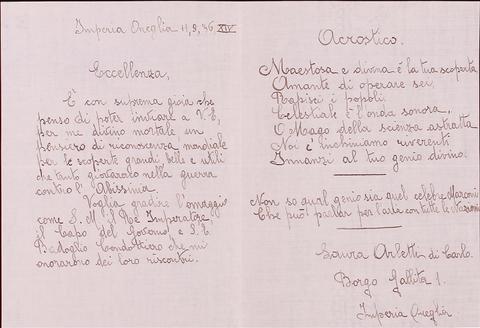 Imperia Oneglia 11, 9, 36 XIV
Eccellenza,
È con suprema gioia che
penso di poter inviare a V. E,
per me divino mortale un
pensiero di riconoscenza mondiale
per le scoperte grandi belle e utili
che tanto giovarono nella guerra
contro l'Abissinia.
Voglia gradire l'omaggio
come S. M. il Re Imperatore,
il Capo del Governo, e S. E.
Badoglio Condottiero che mi
onorarono dei loro riscontri.
Acrostico.
Maestosa e divina è la tua scoperta
Amante di operare sei
Rapisci i popoli
Celestiale è l'onda sonora,
O Mago della scienza astratta
Noi c'inchiniamo riverenti
Innanzi al tuo genio divino!
Non so qual genio sia quel celebre Marconi
Che può parlar per l'aria con tutte le stazioni
Laura Orletti di Carlo.
Borgo 1.
Imperia Oneglia